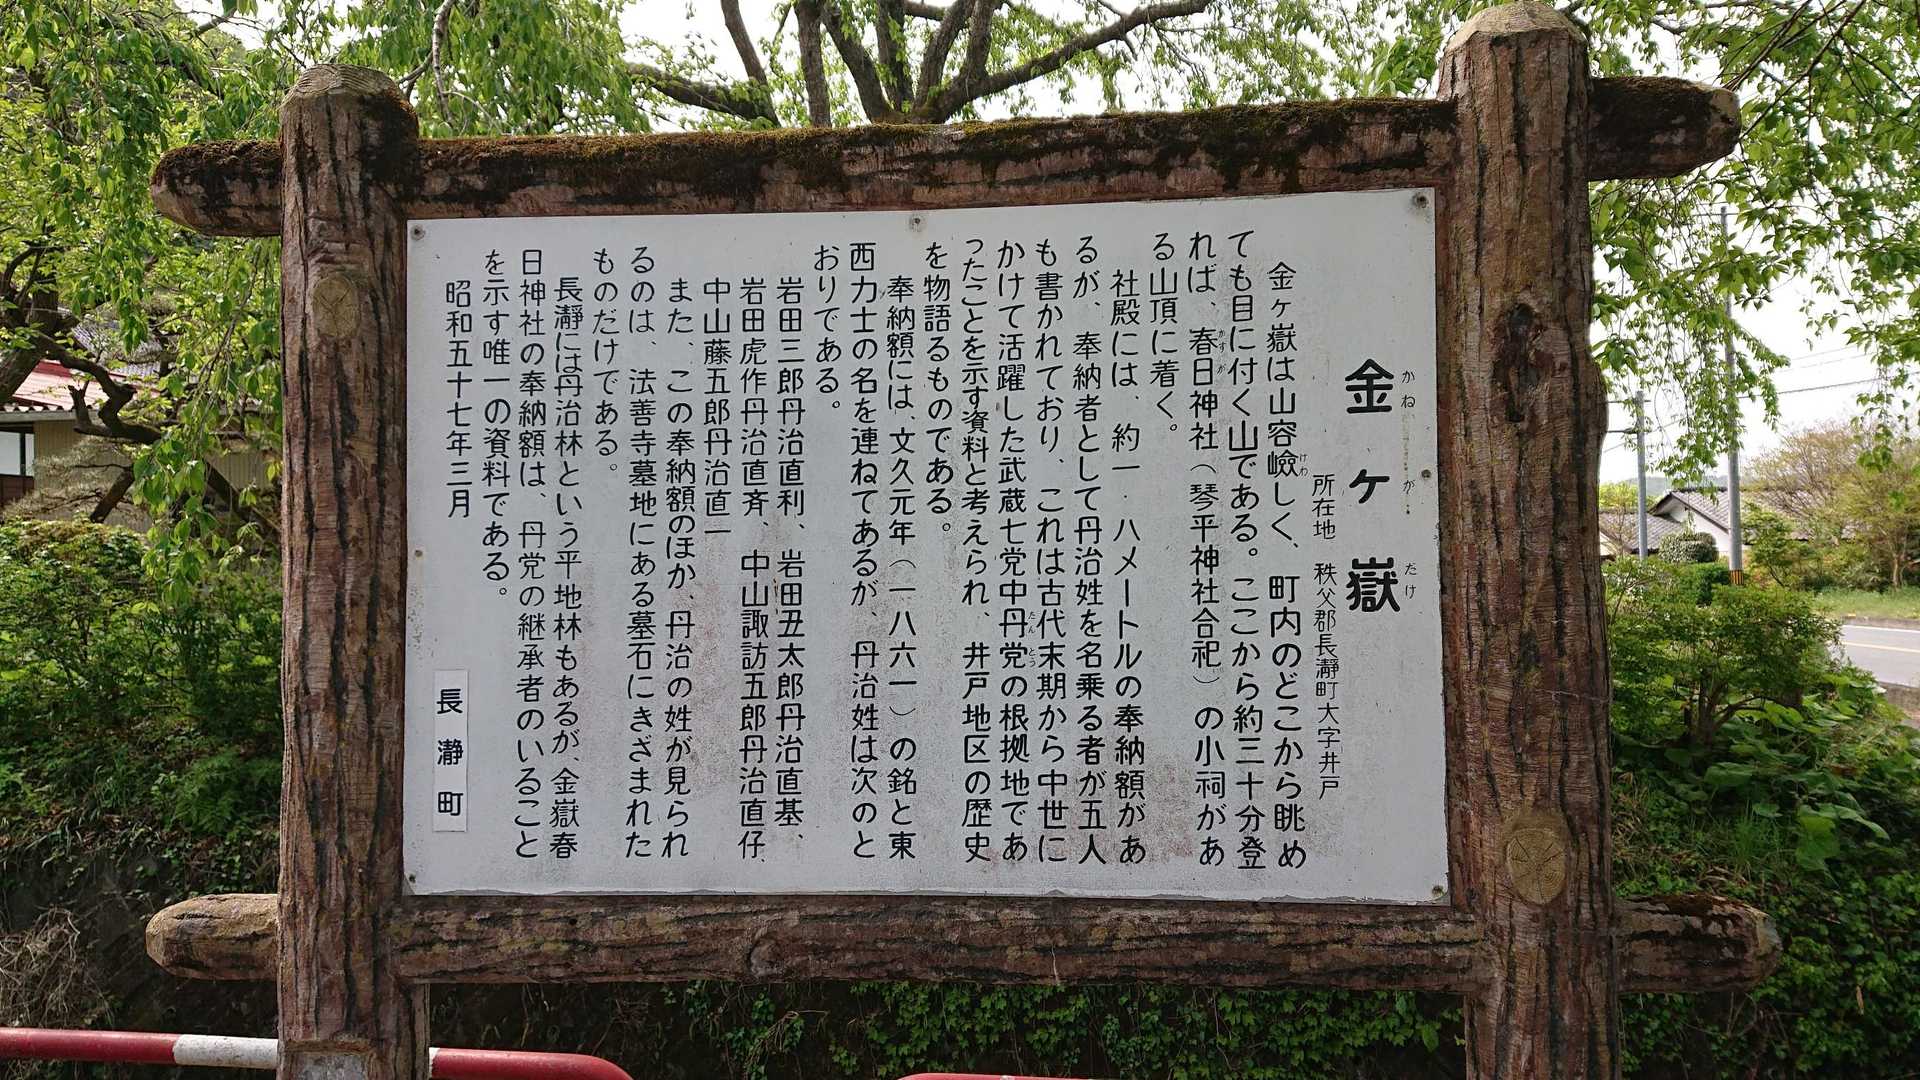 金ヶ嶽
かね が たけ
所在地 秩父郡長瀞町大字井戸
金ヶ嶽は山容嶮しく、町内のどこから眺め
けわ
ても目に付く山である。ここから約三十分登
れば、春日神社（琴平神社合祀）の小祠があ
かすが
る山頂に着く。
社殿には、約一・八メートルの奉納額があ
るが、奉納者として丹治姓を名乗る者が五人
も書かれており、これは古代末期から中世に
かけて活躍した武蔵七党中丹党の根拠地であ
たんとう
ったことを示す資料と考えられ、井戸地区の歴史
を物語るものである。
奉納額には、文久元年（一八六一）の銘と東
西力士の名を連ねてあるが、丹治姓は次のと
おりである。
岩田三郎丹治直利、岩田丑太郎丹治直基、
岩田虎作丹治直斉、中山諏訪五郎丹治直仔
中山藤五郎丹治直一
また、この奉納額のほか、丹治の姓が見られ
るのは、法善寺墓地にある墓石にきざまれた
ものだけである。
長瀞には丹治林という平地林もあるが、金嶽春
日神社の奉納額は、丹党の継承者のいること
を示す唯一の資料である。
昭和五十七年三月
長瀞町